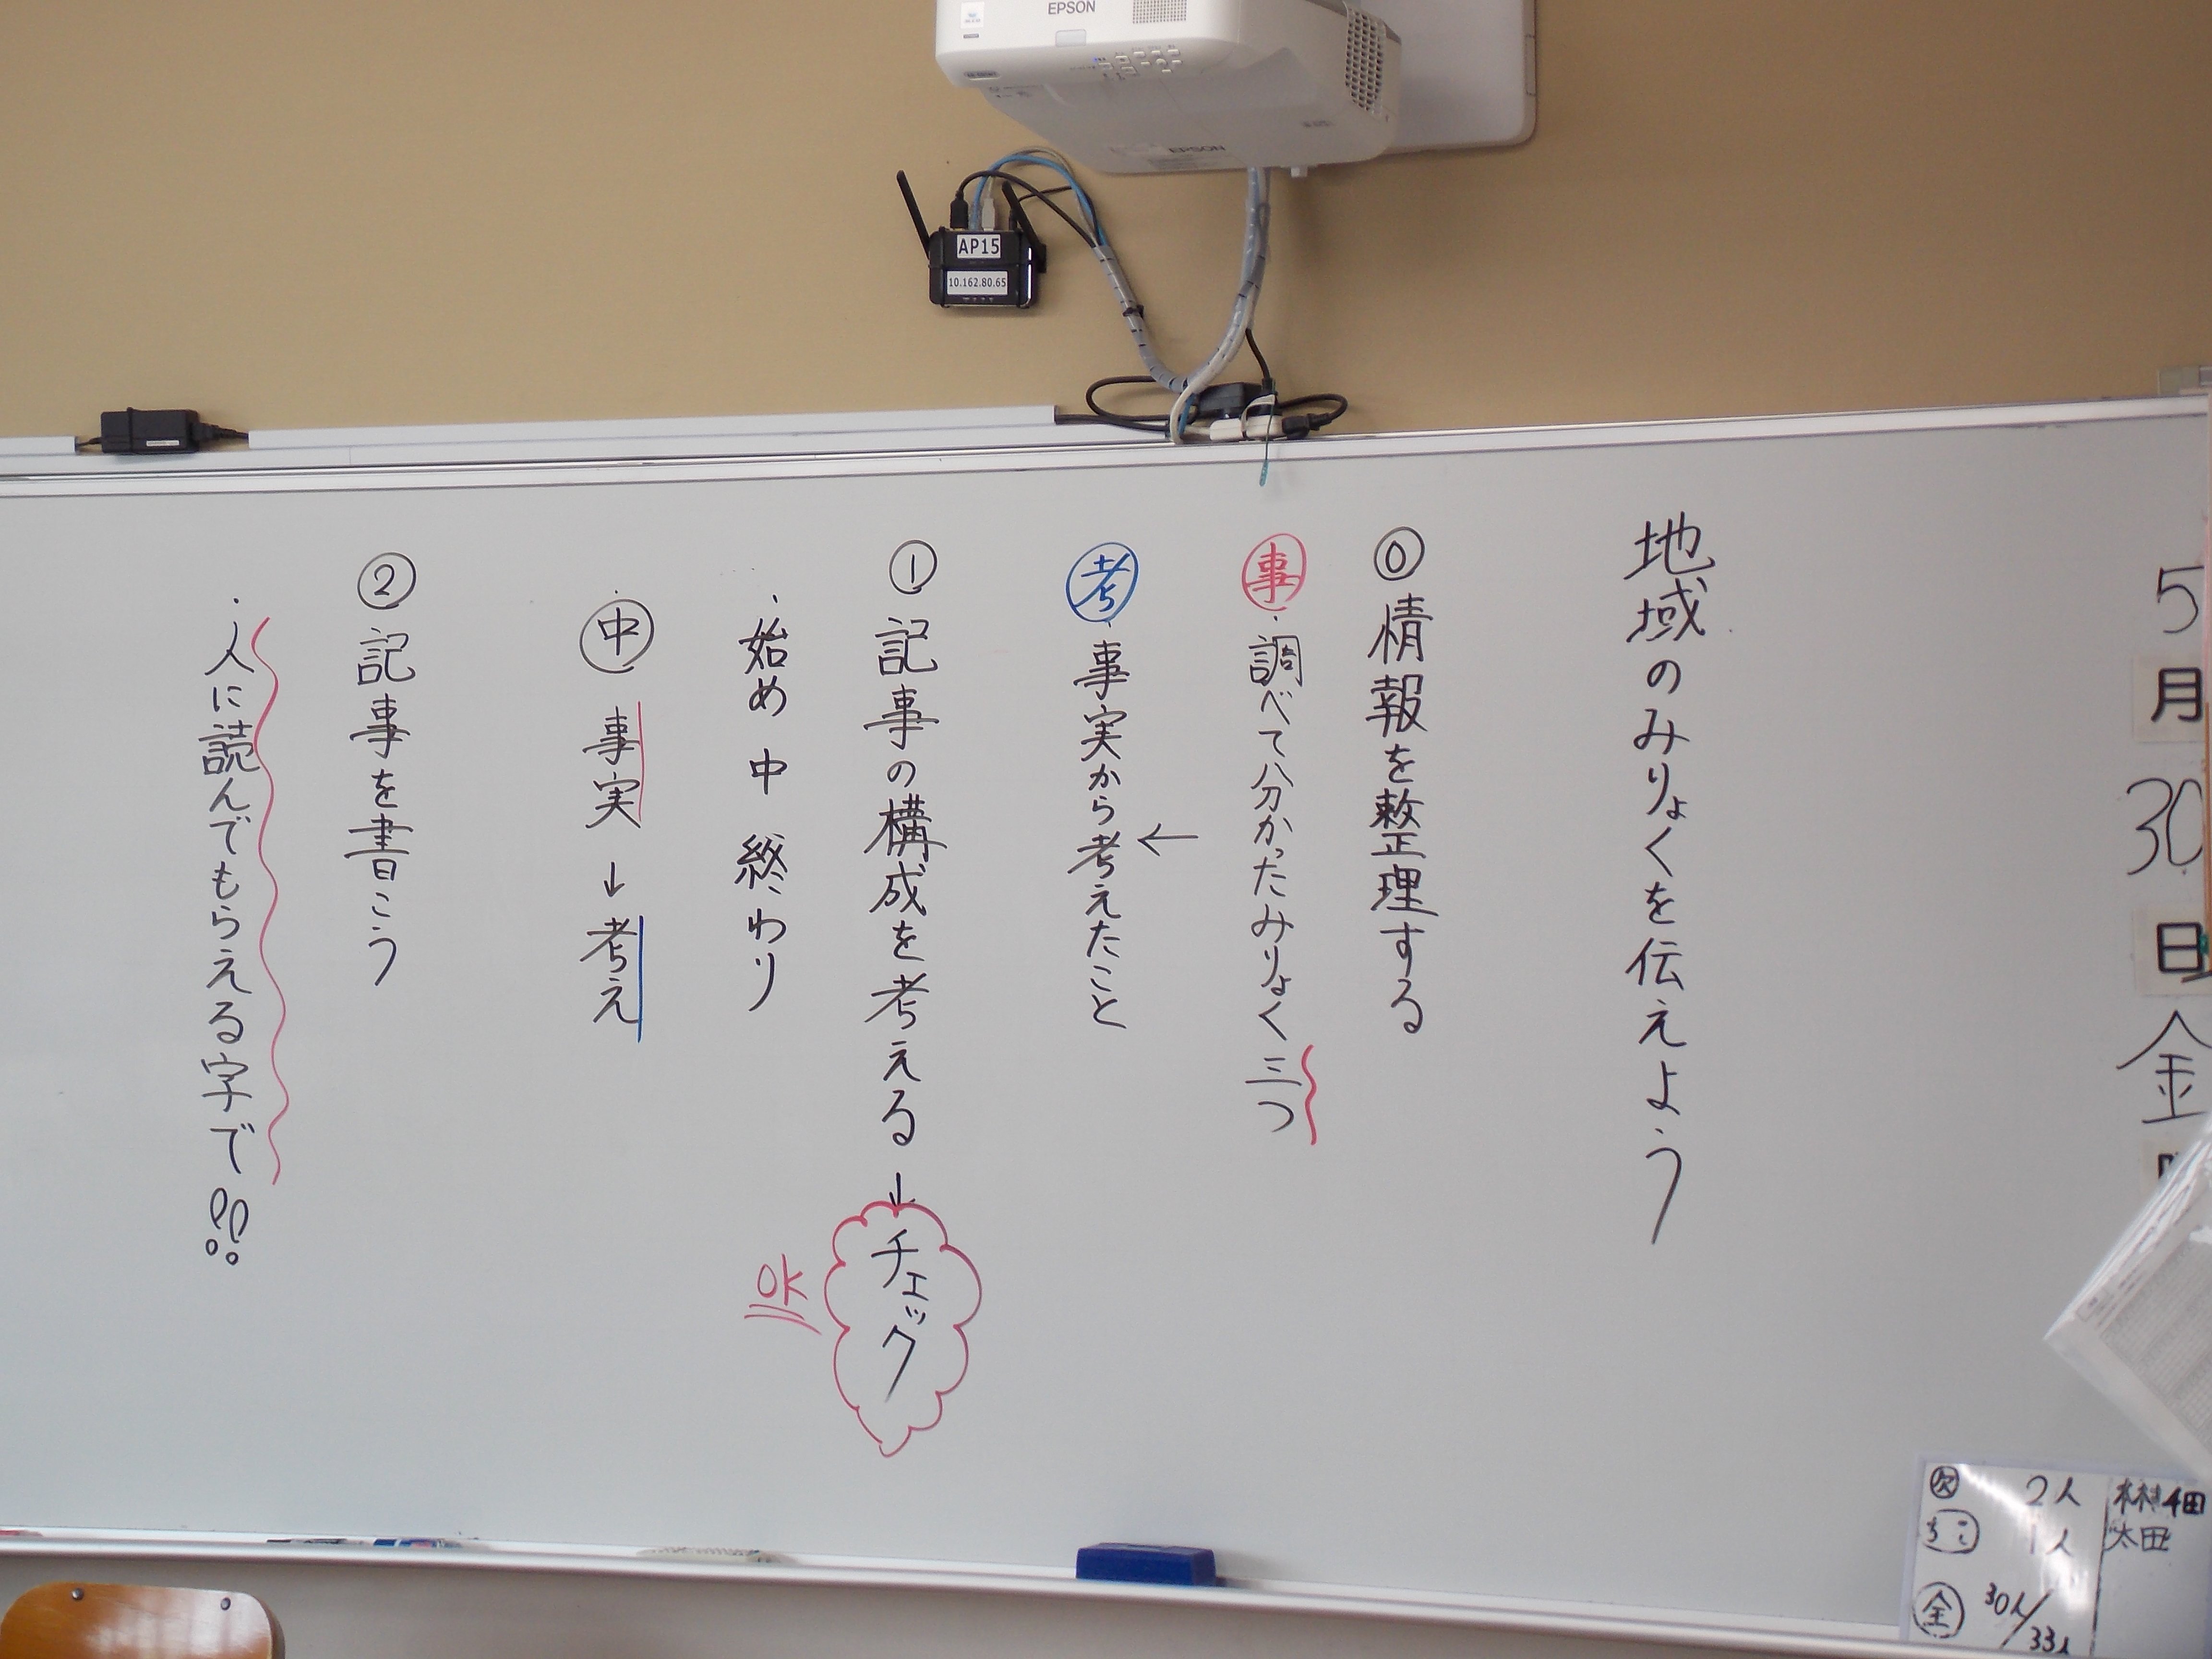 EPSON
EPSON
AP15
10.162.80.65
5月30日金
地域のみりょくを伝えよう
⓪情報を整理する
事・調べて分かったみりょく三つ
←
考・事実から考えたこと
①記事の構成を考える→チェック
OK
・始め 中 終わり
・中 事実→考え
②記事を書こう
・人に読んでもらえる字で!!
欠 2人
ちこ 1人
太田
全 30人/33人